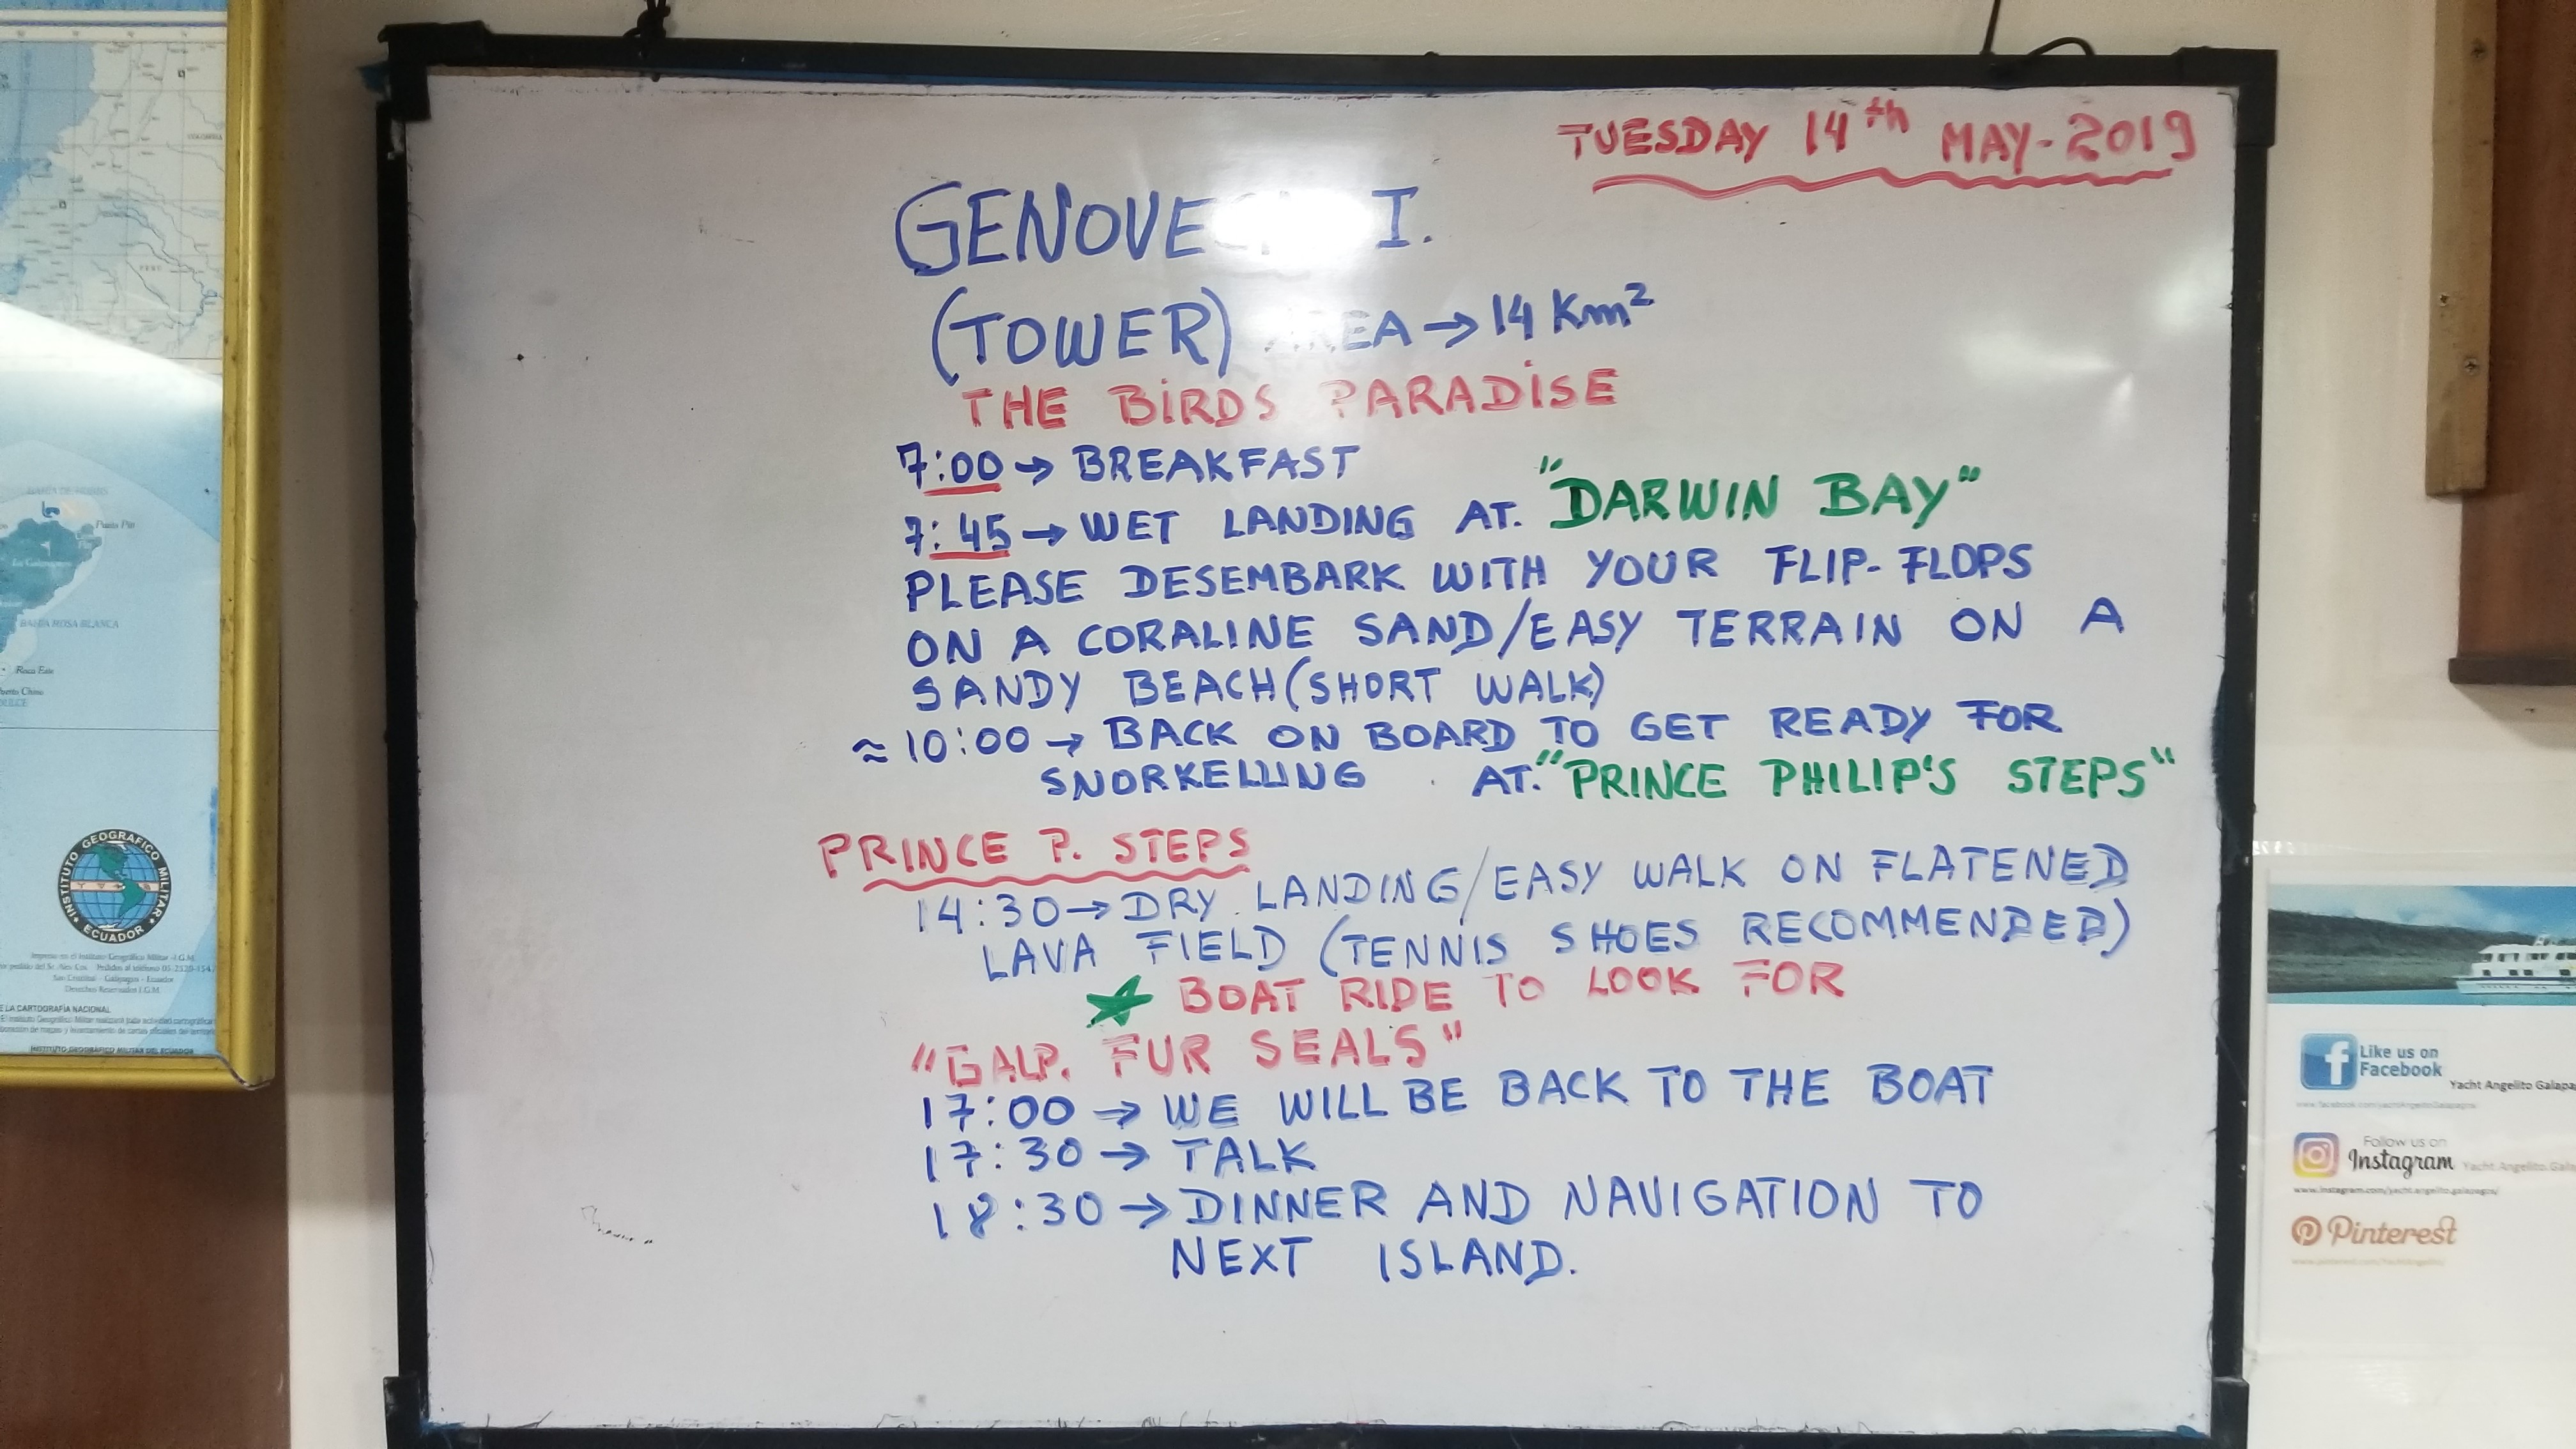 TUESDAY 14th MAY-2019
GENOVE I.
(TOWER) AREA → 14 Km²
THE BIRDS PARADISE
7:00 → BREAKFAST
7:45 → WET LANDING AT. "DARWIN BAY"
PLEASE DESEMBARK WITH YOUR FLIP-FLOPS
ON A CORALINE SAND/EASY TERRAIN ON A
SANDY BEACH (SHORT WALK)
≈ 10:00 → BACK ON BOARD TO GET READY FOR
SNORKELLING AT. "PRINCE PHILIP'S STEPS"
PRINCE P. STEPS
14:30 → DRY LANDING/EASY WALK ON FLATENED
LAVA FIELD (TENNIS SHOES RECOMMENDED)
★ BOAT RIDE TO LOOK FOR
"GALP. FUR SEALS"
17:00 → WE WILL BE BACK TO THE BOAT
17:30 → TALK
18:30 → DINNER AND NAVIGATION TO
NEXT ISLAND.
COLOMBIA
PERU
Punta Pitt
BAHÍA ROSA BLANCA
Roca Este
INSTITUTO GEOGRAFICO MILITAR
ECUADOR
San Cristóbal - Galápagos - Ecuador
Derechos Reservados I.G.M.
E LA CARTOGRAFÍA NACIONAL
INSTITUTO GEOGRÁFICO MILITAR DEL ECUADOR
Like us on
Facebook
Yacht Angelito Galapa
Follow us on
Instagram
Yacht Angelito Gala
Pinterest